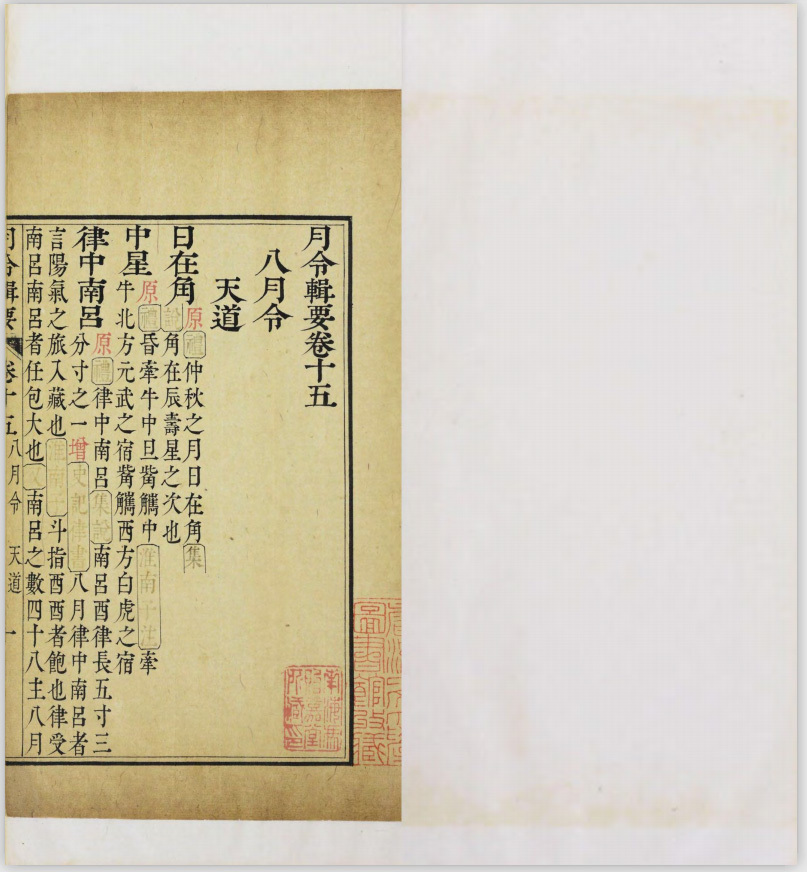 月令輯要卷十五
八月令
天道
日在角
原禮仲秋之月日在角集
說角在辰壽星之次也
中星
原禮昏牽牛中旦觜觿中淮南子注牽
牛北方元武之宿觜觿西方白虎之宿
律中南呂
原禮律中南呂集說南呂酉律長五寸三
分寸之一增史記律書八月律中南呂者
言陽氣之旅入藏也淮南子斗指酉酉者飽也律受
南呂南呂者任包大也又南呂之數四十八主八月
月令輯要 卷十五 八月令 天道 一